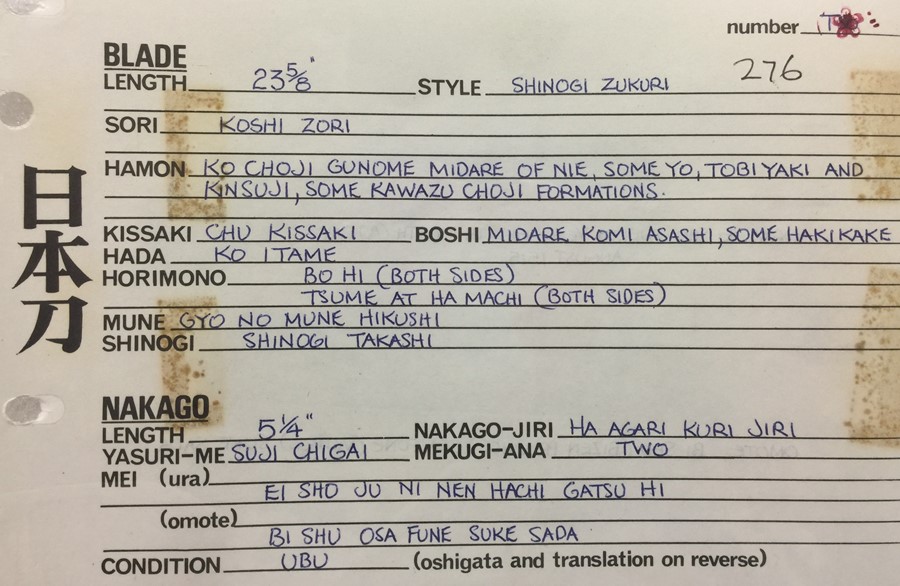 number
276
BLADE
LENGTH 23 5/8" STYLE SHINOGI ZUKURI
SORI KOSHI ZORI
HAMON KO CHOJI GUNOME MIDARE OF NIE, SOME YO, TOBIYAKI AND
KINSUJI, SOME KAWAZU CHOJI FORMATIONS.
KISSAKI CHU KISSAKI BOSHI MIDARE KOMI ASASHI, SOME HAKIKAKE
HADA KO ITAME
HORIMONO BO HI (BOTH SIDES)
TSUME AT HA MACHI (BOTH SIDES)
MUNE GYO NO MUNE HIKUSHI
SHINOGI SHINOGI TAKASHI
日本刀
NAKAGO
LENGTH 5 1/4" NAKAGO-JIRI HA AGARI KURI JIRI
YASURI-ME SUJI CHIGAI MEKUGI-ANA TWO
MEI (ura)
EI SHO JU NI NEN HACHI GATSU HI
(omote)
BI SHU OSA FUNE SUKE SADA
CONDITION UBU (oshigata and translation on reverse)